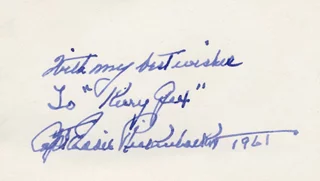 With my best wishes
To "Kerry Gex"
Capt Eddie Rickenbacker 1961